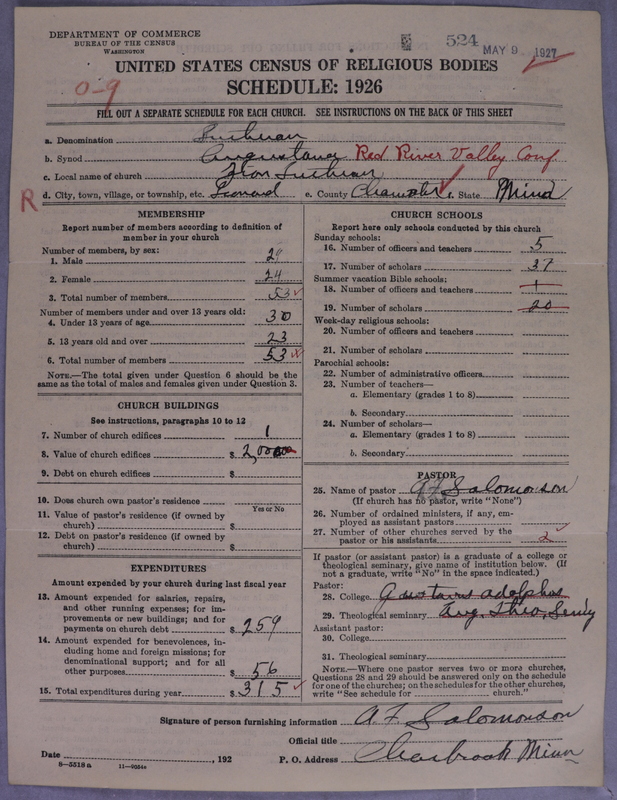 DEPARTMENT OF COMMERCE
BUREAU OF THE CENSUS
WASHINGTON
524
MAY 9 1927
UNITED STATES CENSUS OF RELIGIOUS BODIES
0-9
SCHEDULE: 1926
FILL OUT A SEPARATE SCHEDULE FOR EACH CHURCH. SEE INSTRUCTIONS ON THE BACK OF THIS SHEET
a. Denomination Lutheran
b. Synod Augustana Red River Valley Conf
c. Local name of church Lutheran
R d. City, town, village, or township, etc. Leonard e. County Clearwater f. State Minn
MEMBERSHIP
Report number of members according to definition of
member in your church
Number of members, by sex:
1. Male
2. Female 24
3. Total number of members 53
Number of members under and over 13 years old:
4. Under 13 years of age 30
5. 13 years old and over 23
6. Total number of members 53
NOTE.—The total given under Question 6 should be the
same as the total of males and females given under Question 3.
CHURCH BUILDINGS
See instructions, paragraphs 10 to 12
7. Number of church edifices 1
8. Value of church edifices $ 2,000
9. Debt on church edifices $
10. Does church own pastor's residence
Yes or No
11. Value of pastor's residence (if owned by
church) $
12. Debt on pastor's residence (if owned by
church) $
EXPENDITURES
Amount expended by your church during last fiscal year
13. Amount expended for salaries, repairs,
and other running expenses; for im-
provements or new buildings; and for
payments on church debt $ 259
14. Amount expended for benevolences, in-
cluding home and foreign missions; for
denominational support; and for all
other purposes $ 56
15. Total expenditures during year $ 315
CHURCH SCHOOLS
Report here only schools conducted by this church
Sunday schools:
16. Number of officers and teachers 5
17. Number of scholars 37
Summer vacation Bible schools:
18. Number of officers and teachers 1
19. Number of scholars 20
Week-day religious schools:
20. Number of officers and teachers
21. Number of scholars
Parochial schools:
22. Number of administrative officers
23. Number of teachers—
a. Elementary (grades 1 to 8)
b. Secondary
24. Number of scholars—
a. Elementary (grades 1 to 8)
b. Secondary
PASTOR
25. Name of pastor A F Salomonson
(If church has no pastor, write "None")
26. Number of ordained ministers, if any, em-
ployed as assistant pastors
27. Number of other churches served by the
pastor or his assistants 2
If pastor (or assistant pastor) is a graduate of a college or
theological seminary, give name of institution below. (If
not a graduate, write "No" in the space indicated.)
Pastor:
28. College Gustavus Adolphus
29. Theological seminary Aug. Theo. Semy
Assistant pastor:
30. College
31. Theological seminary
NOTE.—Where one pastor serves two or more churches,
Questions 28 and 29 should be answered only on the schedule
for one of the churches; on the schedules for the other churches,
write "See schedule for church."
Signature of person furnishing information A. F. Salomonson
Official title
Date , 192 P. O. Address Clearbrook Minn
8—5518 a 11—9054a